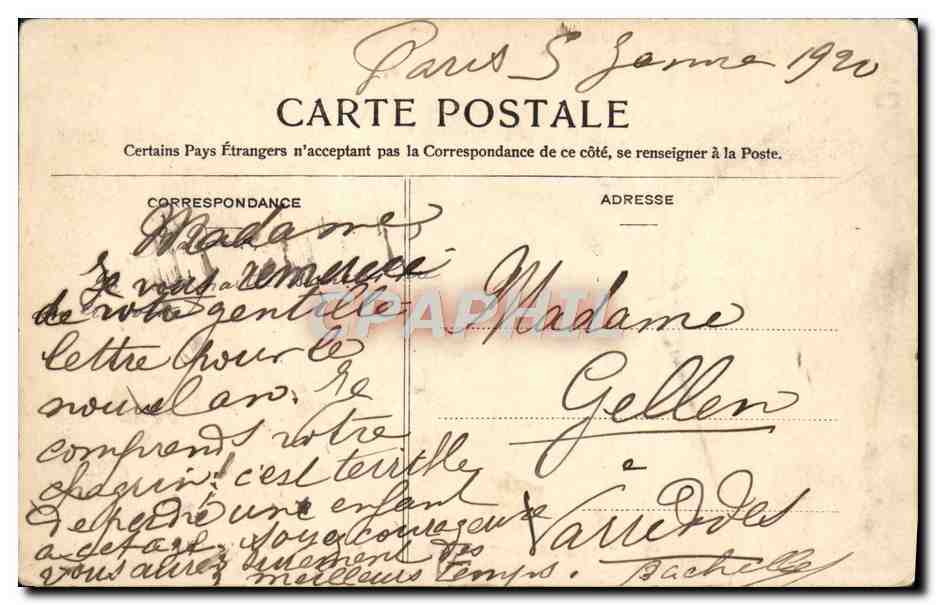 Paris 5 Janvie 1920
CARTE POSTALE
Certains Pays Étrangers n'acceptant pas la Correspondance de ce côté, se renseigner à la Poste.
CORRESPONDANCE
Madame
Je vous remercie
de votre gentille
lettre pour le
nouvel an. Je
comprends votre
chagrin! c'est terrible
de perdre une enfant
a cet age. soyez courageuse
vous aurez surement des
meilleurs temps.
ADRESSE
Madame
Gellen
a
Varreddes
CPAPHIL